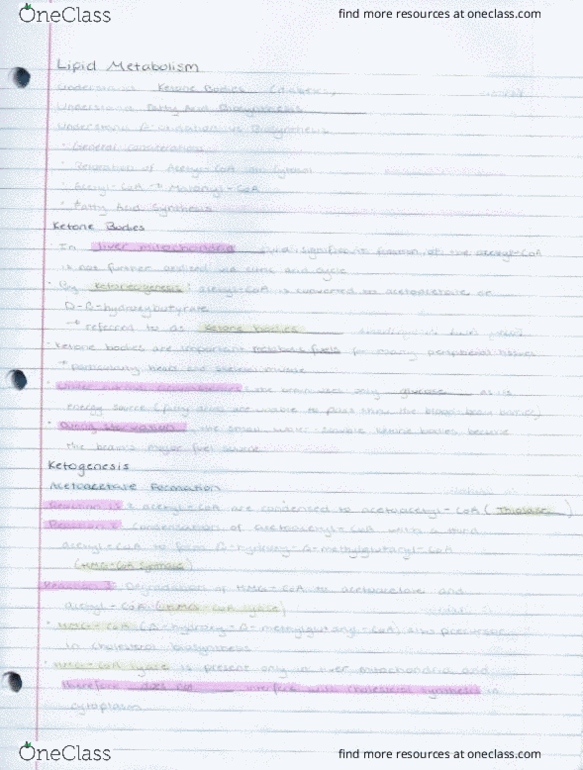 OneClass
find more resources at oneclass.com
Lipid Metabolism
Understand Ketone Bodies
Understand Fatty Acid Biosynthesis
Understand vs Biosynthesis
• General
• of Acetyl-CoA in Cytosol
• Acetyl-CoA → Malonyl-CoA
• Fatty Acid Synthesis
Ketone Bodies
• In liver mitochondria significant fraction of the acetyl-CoA
is not further oxidized via citric acid cycle
• By Ketoneogenesis: acetyl-CoA is converted to acetoacetate or
D-β-hydroxybutyrate
→ referred to as Ketone bodies
• Ketone bodies are important metabolic fuels for many peripheral tissues
→ particularly heart and skeletal muscle
the brain uses only glucose as its
energy source (fatty acids are unable to pass thru the blood-brain barrier)
• During starvation, the small water-soluble ketone bodies become
the brain's major fuel source
Ketogenesis
Acetoacetate Formation
Reaction 1: 2 acetyl-CoA are condensed to acetoacetyl-CoA (Thiolase)
Reaction 2: Condensation of acetoacetyl-CoA with a third
acetyl-CoA to form β-hydroxy-β-methylglutaryl-CoA
(HMG-CoA synthase)
Reaction 3: Degradation of HMG-CoA to acetoacetate and
acetyl-CoA (HMG-CoA lyase)
• HMG-CoA (β-hydroxy-β-methylglutaryl-CoA) also precursor
in cholesterol biosynthesis
• HMG-CoA lyase is present only in liver mitochondria and
therefore does not interfere with cholesterol synthesis in
cytoplasm
OneClass
find more resources at oneclass.com